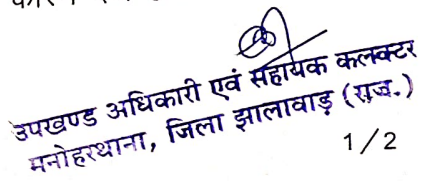 उपखण्ड अधिकारी एवं सहायक कलक्टर
मनोहरथाना, जिला झालावाड़ (राज.)
1/2